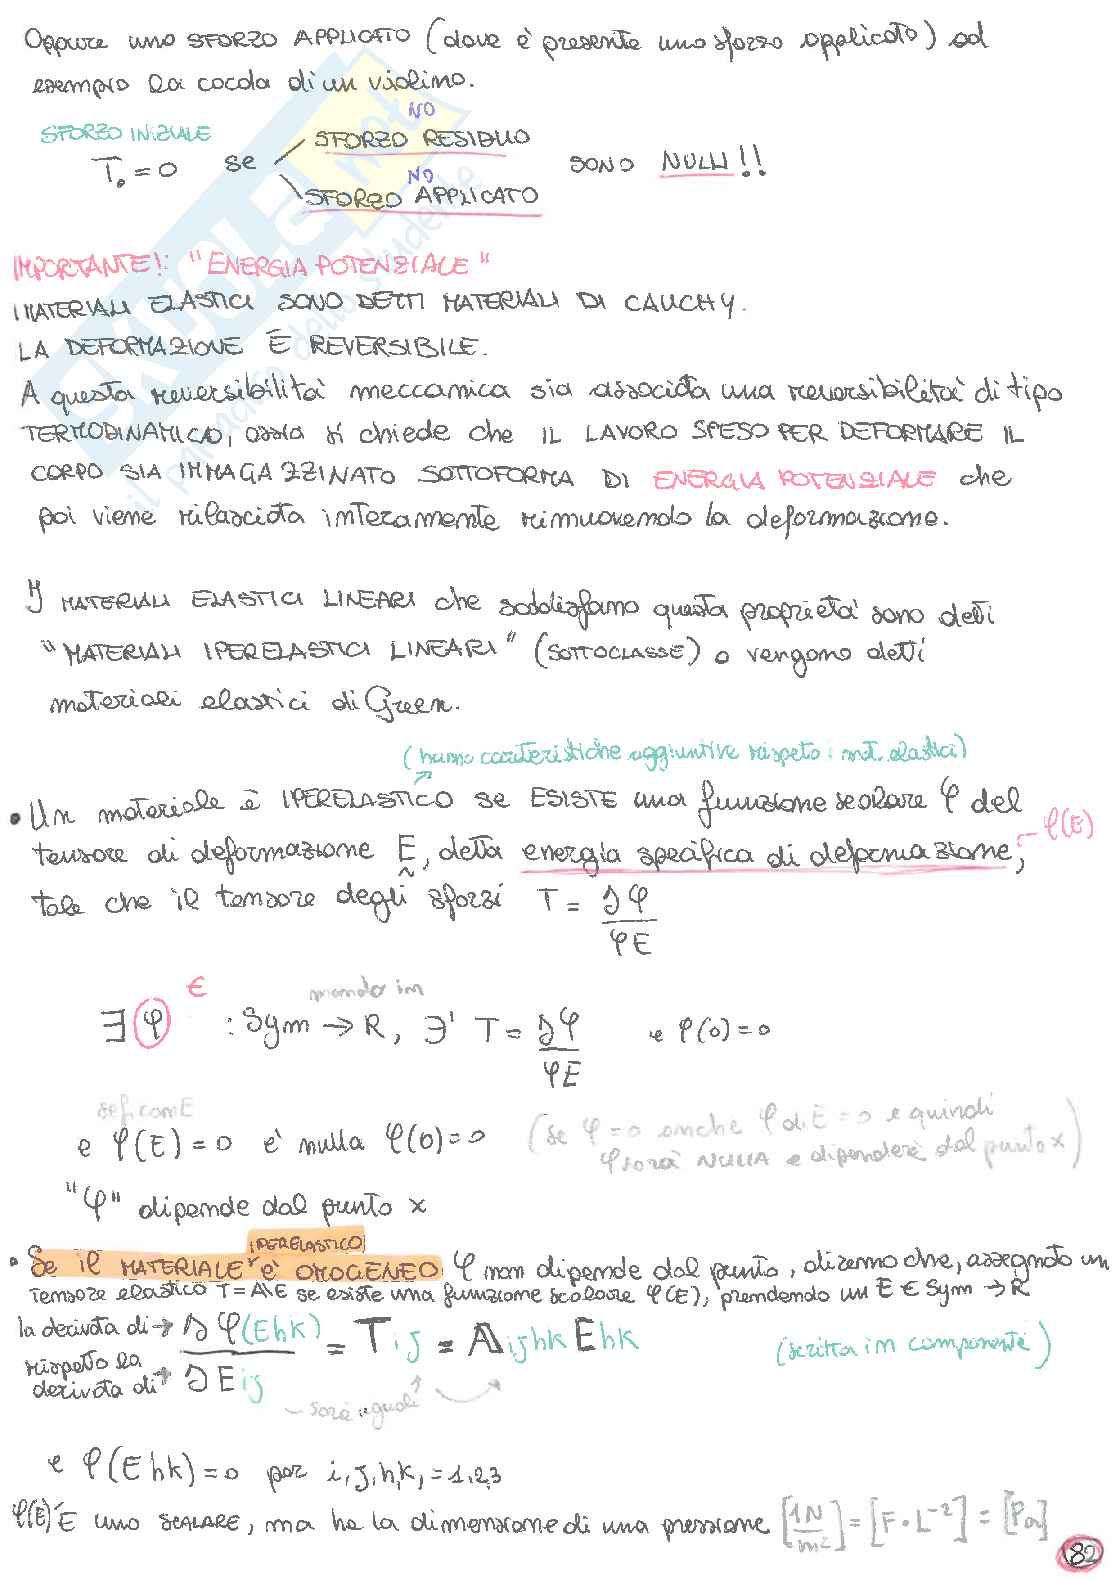 Oppure uno SFORZO APPLICATO (dove è presente uno sforzo applicato) ad
esempio la cocola di un violino.
NO
SFORZO INIZIALE SFORZO RESIDUO
T₀ = 0 se SONO NULLI!!
NO
SFORZO APPLICATO
IMPORTANTE!: "ENERGIA POTENZIALE"
I MATERIALI ELASTICI SONO DETTI MATERIALI DI CAUCHY.
LA DEFORMAZIONE È REVERSIBILE.
A questa reversibilità meccanica sia associata una reversibilità di tipo
TERMODINAMICO, ossia si chiede che IL LAVORO SPESO PER DEFORMARE IL
CORPO SIA IMMAGAZZINATO SOTTOFORMA DI ENERGIA POTENZIALE che
poi viene rilasciata interamente rimuovendo la deformazione.
I MATERIALI ELASTICI LINEARI che soddisfano questa proprietà sono detti
"MATERIALI IPERELASTICI LINEARI" (SOTTOCLASSE) o vengono detti
materiali elastici di Green.
(hanno caratteristiche aggiuntive rispeto i mat. elastici)
• Un materiale è IPERELASTICO se ESISTE una funzione scalare φ del
tensore di deformazione E, detta energia specifica di deformazione, φ(E)
tale che il tensore degli sforzi T = ∂φ/φE
∃ φ € : Sym → R, ∃' T = ∂φ/φE e φ(0)=0
manda in
e φ(E) = 0 è nulla φ(0)=0 (se φ=0 anche φ di E = 0 e quindi
φ sarà NULLA e dipenderè dal punto x)
"φ" dipende dal punto x
IPERELASTICO
• Se il MATERIALE è OMOGENEO φ non dipende dal punto, diremo che, assegnato un
tensore elastico T = AE se esiste una funzione scalare φ(E), prendendo un E € Sym → R
la derivata di → ∂φ(Ehk) = Tij = Aijhk Ehk (scritta in componente)
rispetto la
derivata di → ∂Eij
– sarà uguali
e φ(Ehk) = 0 per i, j, h, k, = 1,2,3
φ(E) È uno SCALARE, ma ha la dimensione di una pressione [1N/m²] = [F·L⁻²] = [Pa]
82
SKUOLA.net
il paradiso dello studente